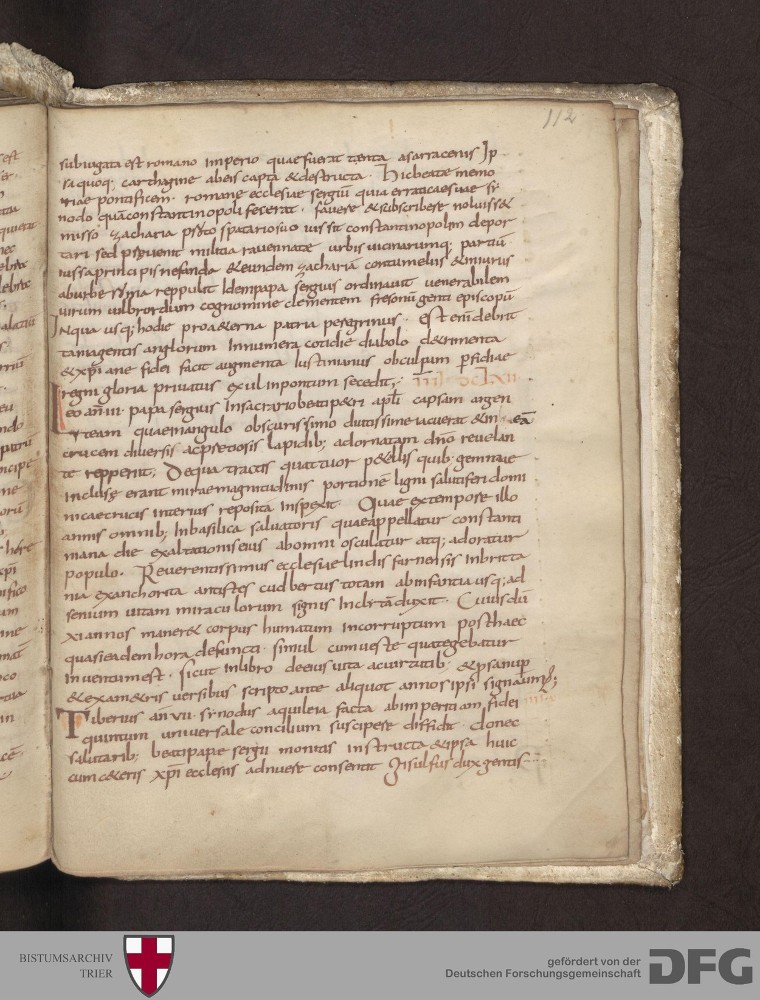 112
subiugata est romano imperio quae fuerat tenta a sarracenis Ip
sa quoq; carthagine ab eis capta & destructa. Hic beatae memo
riae pontificem. romane ecclesiae sergiũ quia erraticae suae sẏ
nodo quã constantinopoli fecerat. favere & subscribere noluiss&
misso zacharia protospatario suo iussit constantinopolim depor
tari sed pręvenit militia ravennatę urbis vicinarumq; partiũ
iussa principis nefanda & eundem zachariã contumeliis & iniuriis
ab urbe roma reppulit Idem papa sergius ordinavit venerabilem
virum vilbrordium cognomine clementem fresonũ genti episcopũ
In qua usq; hodie pro a&erna patria peregrinus. Est enĩ debrit
tania gentis anglorum innumera cotidie diabolo d&rimenta
& xp̃iane fidei facit augmenta Iustinianus ob culpam perfidiae
regni gloria privatus exul in pontum secedit; IIII DCLXII
Leo an̄ III papa sergius In sacrario beati p&ri apl̃i capsam argen
team quae in angulo obscurissimo diutissime iacuerat & in ea
crucem diversis ac pretiosis lapidib; adornatam dñο revelan
te repperit; De qua tractis quattuor p&allis quib; gemmae
inclusę erant mirae magnitudinis portionẽ ligni salutiferi domi
nicae crucis interius reposita inspexit. Quae ex tempore illo
annis omnib; In basilica salvatoris quae appellatur constanti
niana die exaltationis eius ab omni osculatur atq; adoratur
populo. Reverentissimus ecclesiae lindis farnensis In britta
nia ex anchorita antistes cudbertus totam ab infantia usq; ad
senium vitam miraculorum signis inclitã duxit. Cuius dũ
XI annos maner& corpus humatum incorruptum post haec
quasi eadem hora defuncti. simul cum veste qua tegebatur
inventum est. sicut in libro de eius vita ac virtutib; & psa
& exam&ris versibus scripto ante aliquot annos ipsi
Tiberius an̄ VII sẏnodus aquileia facta ab imperitiam fidei
quintum universale concilium suscipere diffidit. donec
salutarib; beati papae sergii monitis instructa & ipsa huic
cum c&eris xp̃i ecclesiis adnuere consentit Gisulfus dux gentis
BISTUMSARCHIV
TRIER
gefördert von der
Deutschen Forschungsgemeinschaft
DFG